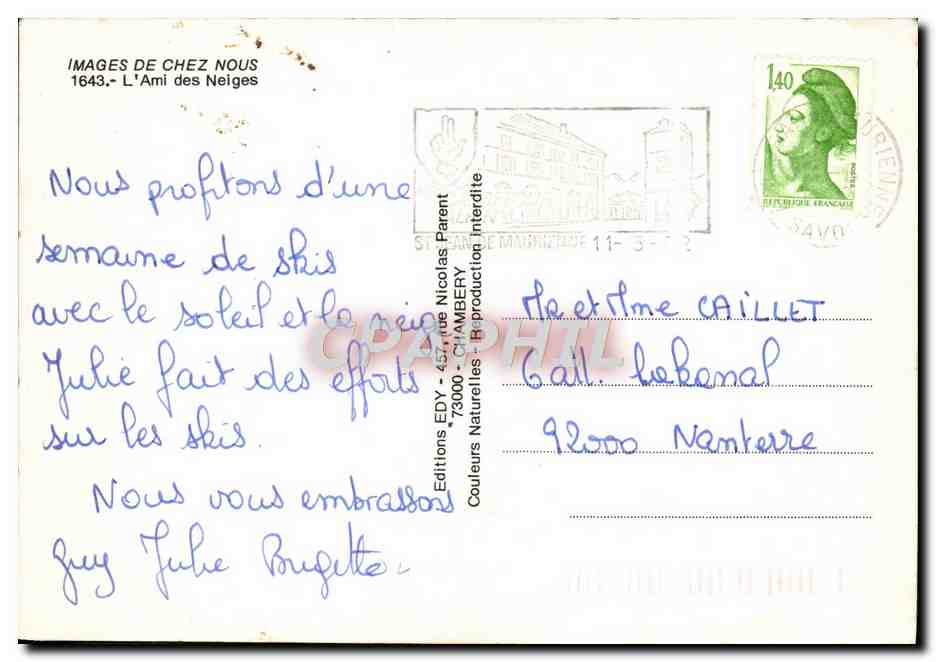 IMAGES DE CHEZ NOUS
1643.- L'Ami des Neiges
Nous profitons d'une
semaine de skis
avec le soleil et la neige
Julie fait des efforts
sur les skis.
Nous vous embrassons
Guy Julie Brigitte
Editions EDY - 457, rue Nicolas Parent
73000 - CHAMBERY
Couleurs Naturelles - Reproduction interdite
ST JEAN DE MAURIENNE 11-3-
1,40
POSTES
REPUBLIQUE FRANÇAISE
CPAPHIL
Mr et Mme CAILLET
6 all. Lakanal
92000 Nanterre